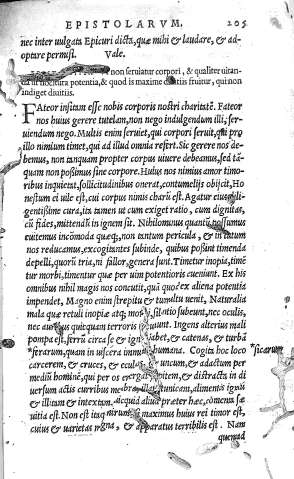 EPISTOLARVM. 205
nec inter uulgata Epicuri dicta, quæ mihi & laudare, & ad-
optare permisi. Vale.
non seruiatur corpori, & qualiter uitan-
da nocitura potentia, & quod is maxime diuitiis fruitur, qui non
indiget diuitiis.
FAteor insitam esse nobis corporis nostri charitatē. Fateor
nos huius gerere tutelam, non nego indulgendum illi, ser-
uiendum nego. Multis enim seruiet, qui corpori seruit, qui pro
illo nimium timet, qui ad illud omnia refert. Sic gerere nos de-
bemus, non tanquam propter corpus uiuere debeamus, sed tā-
quam non possimus sine corpore. Huius nos nimius amor timo-
ribus inquietat, sollicitudinibus onerat, contumelijs obijcit, Ho
nestum ei uile est, cui corpus nimis charū est. Agatur eius dili-
gentissime cura, ita tamen ut cum exiget ratio, cum dignitas,
cū fides, mittendū in ignem sit. Nihilominus quantū possumus
euitemus incōmoda quæq;, non tantum pericula, & in tutum
nos reducamus, excogitantes subinde, quibus possint timenda
depelli, quorū tria, ni fallor, genera sunt. Timetur inopia, timē
tur morbi, timentur quæ per uim potentioris eueniunt. Ex his
omnibus nihil magis nos concutit, quā quod ex aliena potentia
impendet, Magno enim strepitu & tumultu uenit, Naturalia
mala quæ retuli inopia atq; silentio subeunt, nec oculis,
nec quicquam terroris Ingens alterius mali
pompa est, ferrū circa se & habet, & catenas, & turbā
*ferarum, quam in uiscera Cogita hoc loco *sicarum
carcerem, & cruces, & uncum, & adactum per
mediū hominē, qui per os & distracta in di
uersum actis curribus alimentis ignium
& illitam & intextam, aliquid aliud præter hæc, cōmenta sæ
uitia est. Non est itaq; maximus huius rei timor est,
cuius & uarietas magna, & apparatus terribilis est. Nam
quemad